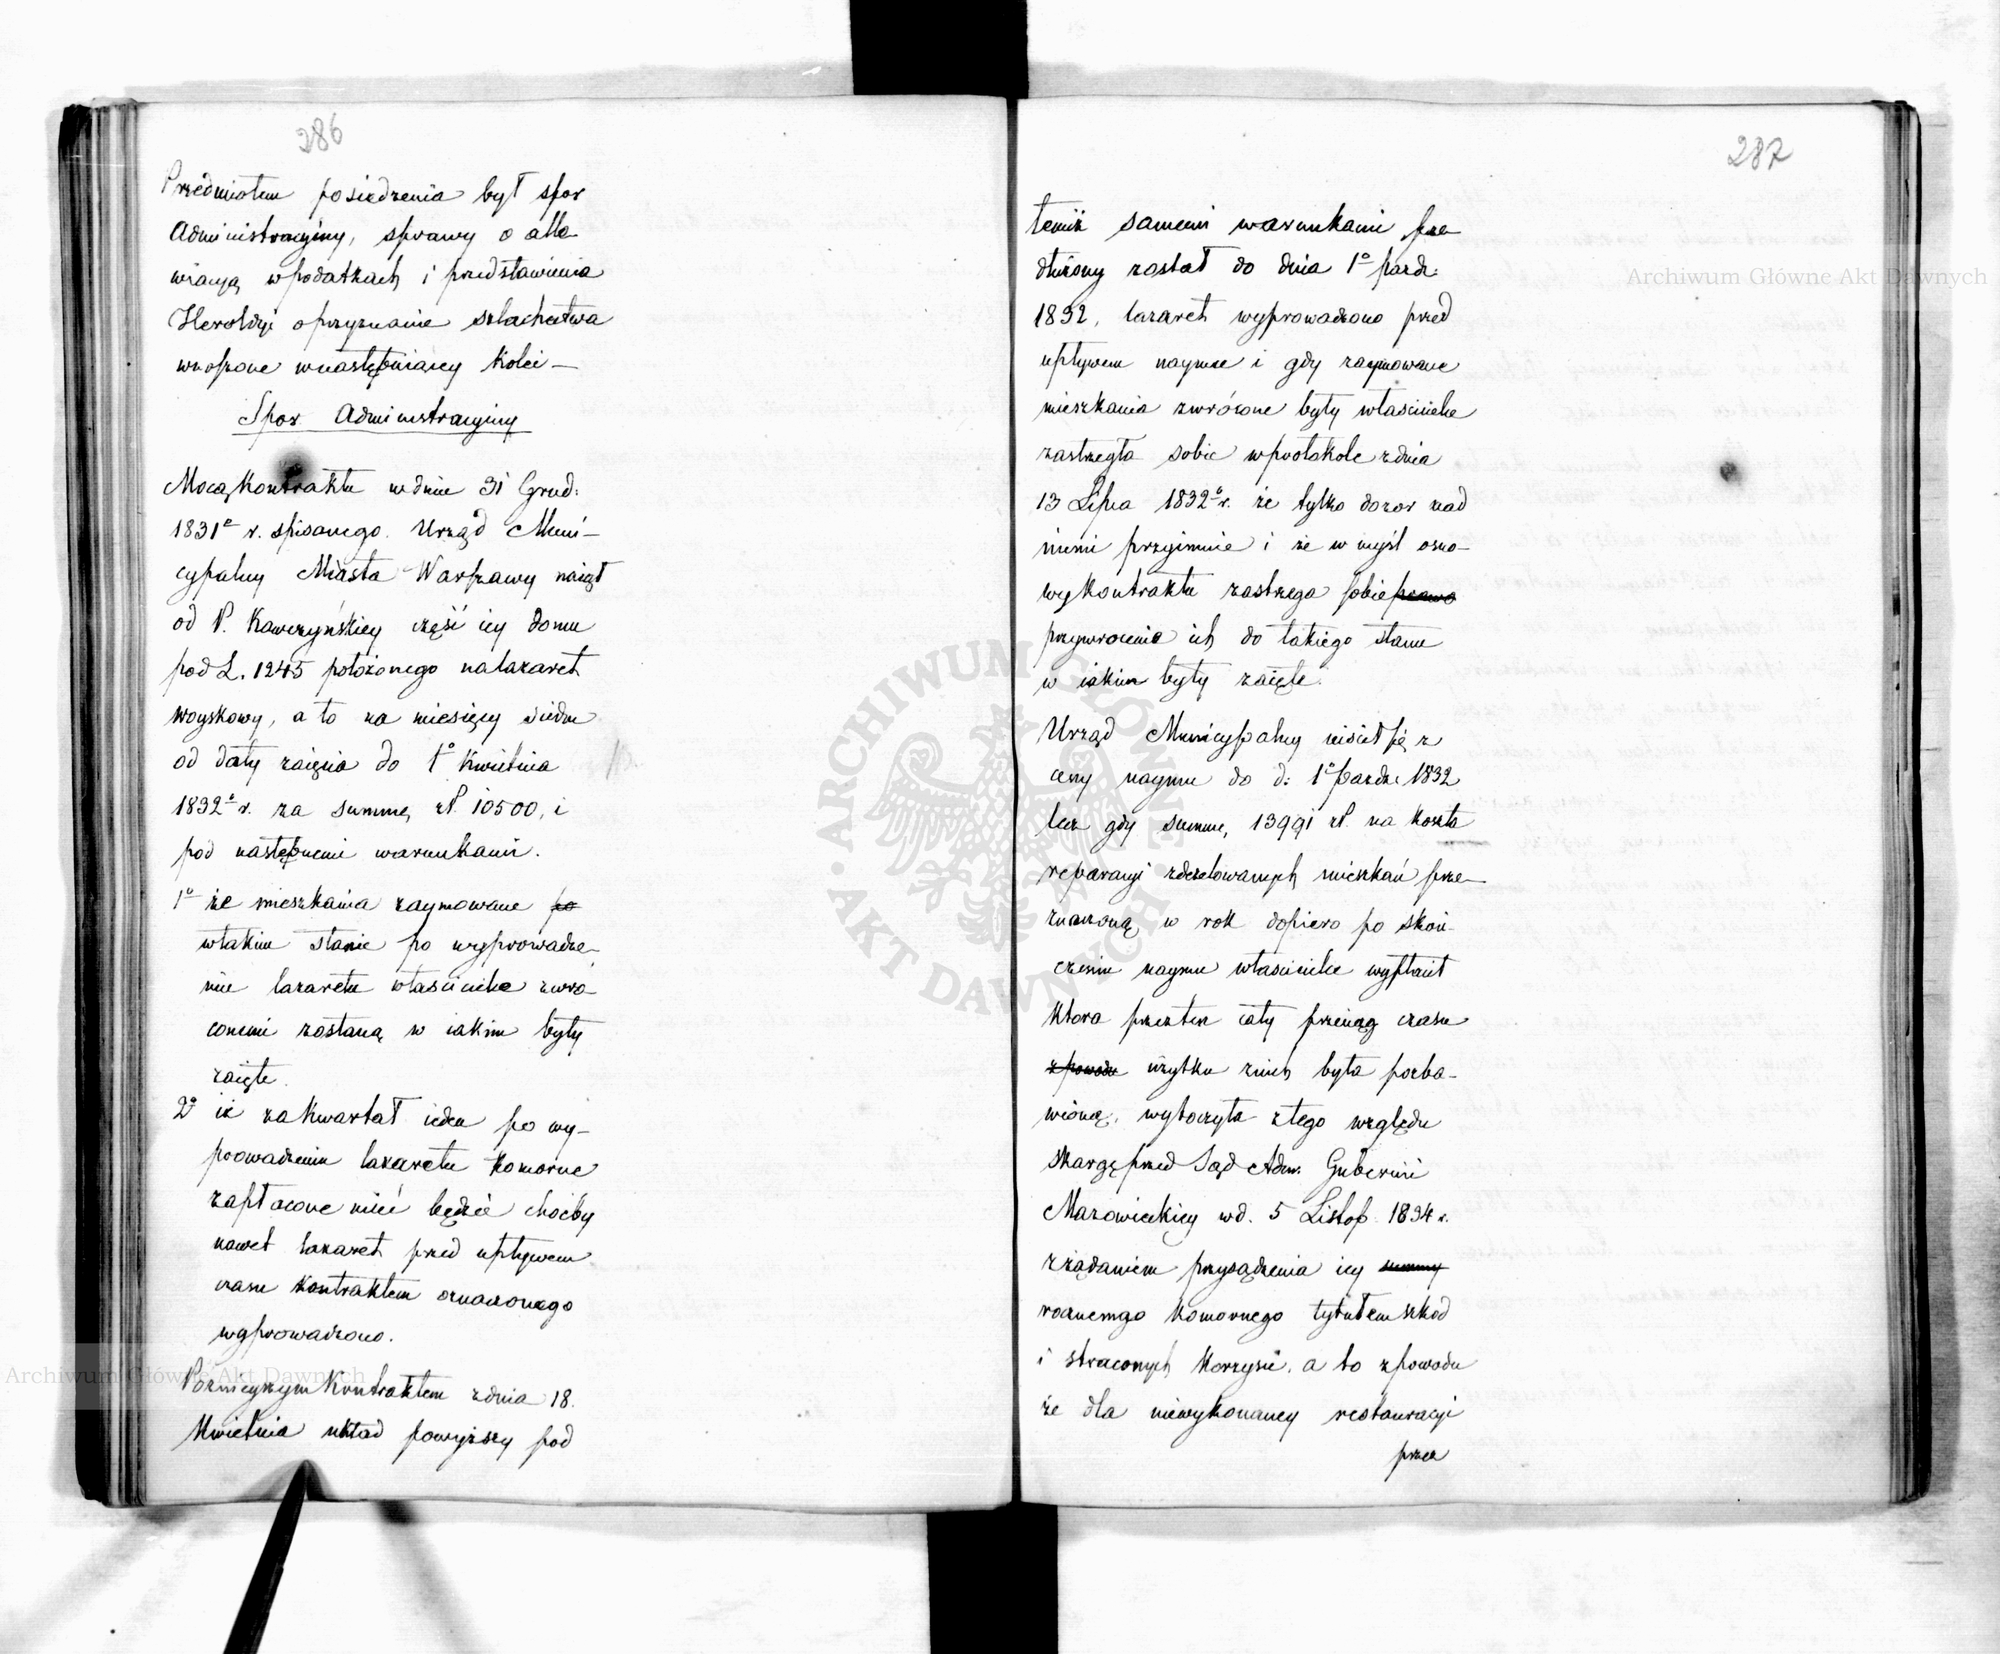 286
Przedmiotem posiedzenia był spór
Administracyiny, sprawy o alle
wiacyą w podatkach i przedstawienia
Heroldyi o przyznanie szlachectwa
wnoszone w następuiącey kolei —
Spor Administracyiny
Mocą Kontraktu w dniu 31 Grud:
1831º r. spisanego Urząd Muni-
cypalny Miasta Warszawy naiął
od P. Kawczyńskiey część iey domu
pod L. 1245 położonego na lazaret
woyskowy, a to na miesięcy siedm
od daty zaięcia do 1º Kwietnia
1832º r. za summę zł. 10500, i
pod następnemi warunkami.
1º że mieszkania zaymowane po
w takim stanie po wyprowadze-
niu lazaretu właścicielce zwró-
conemi zostaną w iakim były
zaięte.
2º iż za kwartał ieden po wy-
prowadzeniu lazaretu komorne
zapłacone mieć będzie choćby
nawet lazaret przed upływem
czasu kontraktem oznaczonego
wyprowadzono.
Poznieyszym Kontraktem z dnia 18.
Kwietnia układ powyższy pod
287
temiż samemi warunkami prze
dłużony został do dnia 1º paźdz:
1832, lazaret wyprowadzono przed
upływem naymu i gdy zaymowane
mieszkania zwrócone były właścicielce
zastrzegła sobie w protokole z dnia
13 Lipca 1832º r. że tylko dozor nad
niemi przyimuie i że w myśl osno-
wy Kontraktu zastrzega sobie prawo
przywrócenia ich do takiego stanu
w iakim były zaięte.
Urząd Municypalny uiścił się z
ceny naymu do d: 1º Paźdz. 1832
lecz gdy summę, 13991 zł. na koszta
reparacyi zdezelowanych mieszkań prze-
znaczoną w rok dopiero po skoń-
czeniu naymu właścicielce wypłacił
która przez ten cały przeciąg czasu
z powodu użytku z nich była pozba-
wioną, wytoczyła z tego względu
skargę przed Sąd Adm. Gubernii
Mazowieckiey w d. 5 Listop. 1834 r.
z żądaniem przysądzenia iey summy
rocznego komornego tytułem szkód
i straconych korzyści, a to z powodu
że dla niewykonaney restauracyi
przez
Archiwum Główne Akt Dawnych
Archiwum Główne Akt Dawnych
ARCHIWUM GŁÓWNE
AKT DAWNYCH